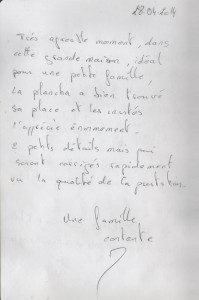 28.04.2014
Très agréable moment, dans
cette grande maison, idéal
pour une petite famille,
La plancha a bien trouvé
sa place et les invités
l'apprécie énormement.
2 petits détails mais qui
seront corrigés rapidement
vu la qualité de la prestation.
Une famille
contente